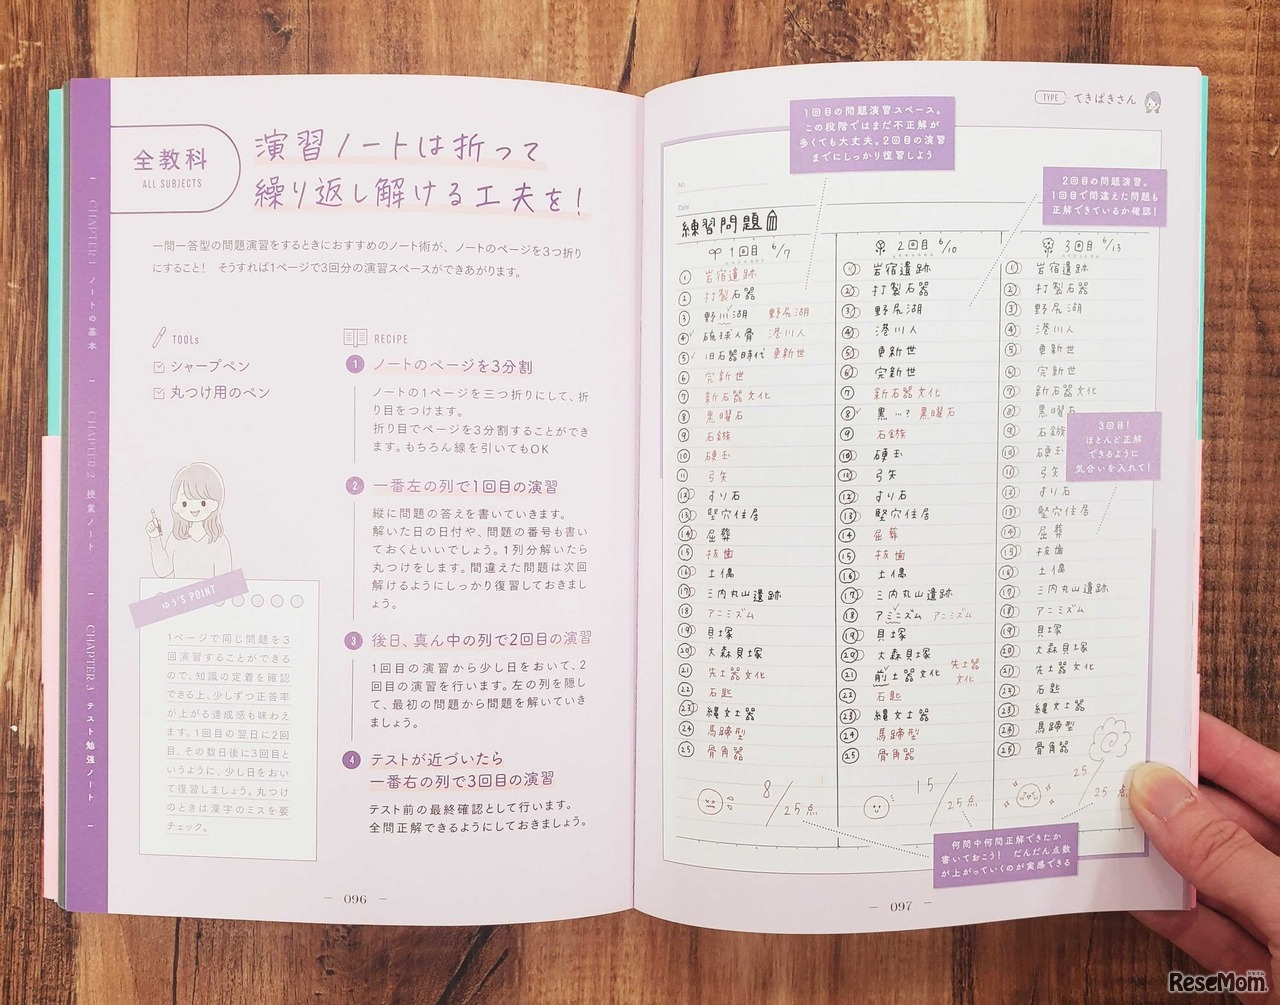 CHAPTER 1 ノートの基本
CHAPTER 2 授業ノート
CHAPTER 3 テスト勉強ノート
全教科
ALL SUBJECTS
演習ノートは折って
繰り返し解ける工夫を!
一問一答型の問題演習をするときにおすすめのノート術が、ノートのページを3つ折り
にすること! そうすれば1ページで3回分の演習スペースができあがります。
TOOLs
シャープペン
丸つけ用のペン
RECIPE
1 ノートのページを3分割
ノートの1ページを三つ折りにして、折
り目をつけます。
折り目でページを3分割することができ
ます。もちろん線を引いてもOK
2 一番左の列で1回目の演習
縦に問題の答えを書いていきます。
解いた日の日付や、問題の番号も書い
ておくといいでしょう。1列分解いたら
丸つけをします。間違えた問題は次回
解けるようにしっかり復習しておきまし
ょう。
3 後日、真ん中の列で2回目の演習
1回目の演習から少し日をおいて、2
回目の演習を行います。左の列を隠し
て、最初の問題から問題を解いていき
ましょう。
4 テストが近づいたら
一番右の列で3回目の演習
テスト前の最終確認として行います。
全問正解できるようにしておきましょう。
ゆう'S POINT
1ページで同じ問題を3
回演習することができる
ので、知識の定着を確認
できる上、少しずつ正答率
が上がる達成感も味わえ
ます。1回目の翌日に2回
目、その数日後に3回目と
いうように、少し日をおい
て復習しましょう。丸つけ
のときは漢字のミスを要
チェック。
096
TYPE てきぱきさん
1回目の問題演習スペース。
この段階ではまだ不正解が
多くても大丈夫。2回目の演習
までにしっかり復習しよう
2回目の問題演習。
1回目で間違えた問題も
正解できているか確認!
No.
Date
練習問題
1回目 6/7
① 岩宿遺跡
② 打製石器
③ 野川湖 野尻湖
④ 琉球人骨 港川人
⑤ 旧石器時代 更新世
⑥ 完新世
⑦ 新石器文化
⑧ 黒曜石
⑨ 石鏃
⑩ 硬玉
⑪ 弓矢
⑫ すり石
⑬ 竪穴住居
⑭ 屈葬
⑮ 抜歯
⑯ 土偶
⑰ 三内丸山遺跡
⑱ アニミズム
⑲ 貝塚
⑳ 大森貝塚
㉑ 先土器文化
㉒ 石匙
㉓ 縄文土器
㉔ 馬蹄型
㉕ 骨角器
8/25点
2回目 6/10
① 岩宿遺跡
② 打製石器
③ 野尻湖
④ 港川人
⑤ 更新世
⑥ 完新世
⑦ 新石器文化
⑧ 黒…? 黒曜石
⑨ 石鏃
⑩ 硬玉
⑪ 弓矢
⑫ すり石
⑬ 竪穴住居
⑭ 屈葬
⑮ 抜歯
⑯ 土偶
⑰ 三内丸山遺跡
⑱ アミニズム アニミズム
⑲ 貝塚
⑳ 大森貝塚
㉑ 前土器文化 先土器
文化
㉒ 石匙
㉓ 縄文土器
㉔ 馬蹄型
㉕ 骨角器
15/25点
3回目 6/13
① 岩宿遺跡
② 打製石器
③ 野尻湖
④ 港川人
⑤ 更新世
⑥ 完新世
⑦ 新石器文化
⑧ 黒曜石
⑨ 石鏃
⑩ 硬玉
⑪ 弓矢
⑫ すり石
⑬ 竪穴住居
⑭ 屈葬
⑮ 抜歯
⑯ 土偶
⑰ 三内丸山遺跡
⑱ アニミズム
⑲ 貝塚
⑳ 大森貝塚
㉑ 先土器文化
㉒ 石匙
㉓ 縄文土器
㉔ 馬蹄型
㉕ 骨角器
25/25点
3回目!
ほとんど正解
できるように
気合いを入れて!
何問中何問正解できたか
書いておこう! だんだん点数
が上がっていくのが実感できる
097
ReseMom